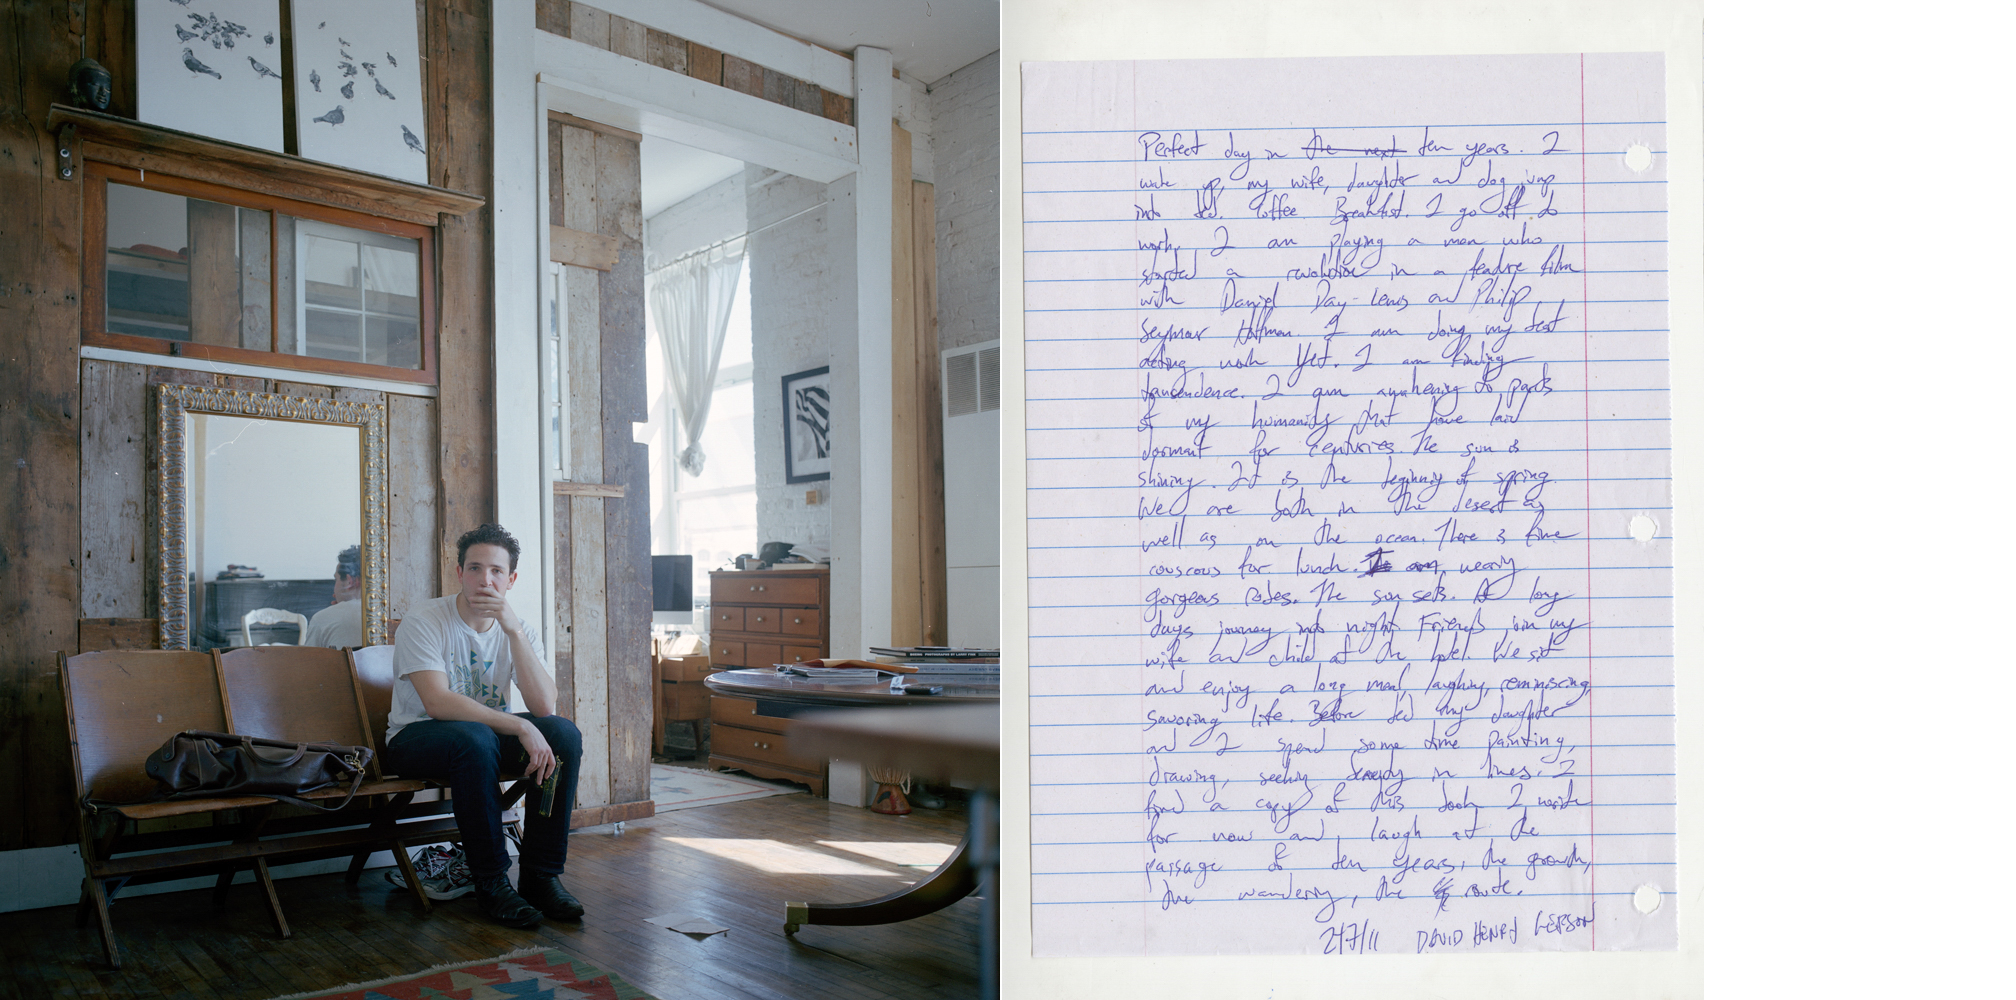 Perfect day in the next ten years. I
wake up, my wife, daughter and dog jump
into bed. Coffee. Breakfast. I go off to
work. I am playing a man who
started a revolution in a feature film
with Daniel Day-Lewis and Philip
Seymour Hoffman. I am doing my best
acting work yet. I am finding
transcendence. I am awakening to parts
of my humanity that have laid
dormant for centuries. The sun is
shining. It is the beginning of spring.
We are both in the desert as
well as on the ocean. There is fine
couscous for lunch. I am wearing
gorgeous robes. The sun sets. A long
days journey into night. Friends join my
wife and child at the hotel. We sit
and enjoy a long meal, laughing, reminiscing,
savoring life. Before bed my daughter
and I spend some time painting,
drawing, seeking beauty in lines. I
find a copy of this book I write
for now and laugh at the
passage of ten years, the growth,
the wandering, the route.
2/7/11 DAVID HENRY GERSON